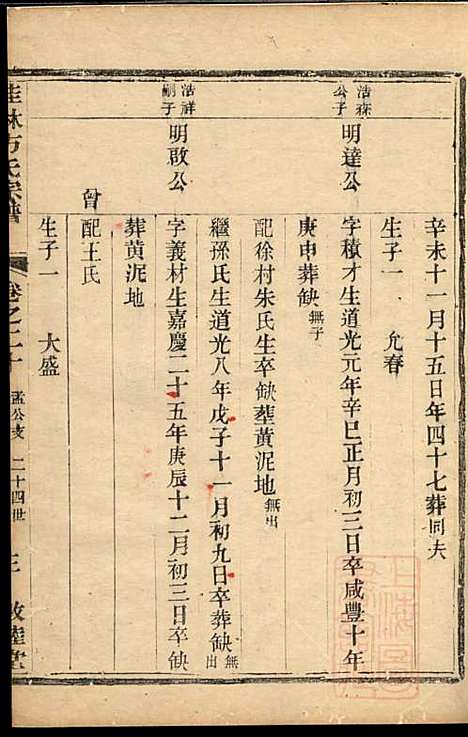 辛未十一月十五日年四十七葬同夫
生子一 允春
浩森公子
明達公
字積才生道光元年辛巳正月初三日卒咸豐十年
庚申葬缺無子
配徐村朱氏生卒缺塟黄泥地無出
繼孫氏生道光八年戊子十一月初九日卒葬缺無出
浩祥嗣子
明啟公
字義材生嘉慶二十五年庚辰十二月初三日卒缺
葬黄泥地
曾配王氏
生子一 大盛
桂林方氏宗譜 卷之二十 孟公支 二十四世 三 敦睦堂